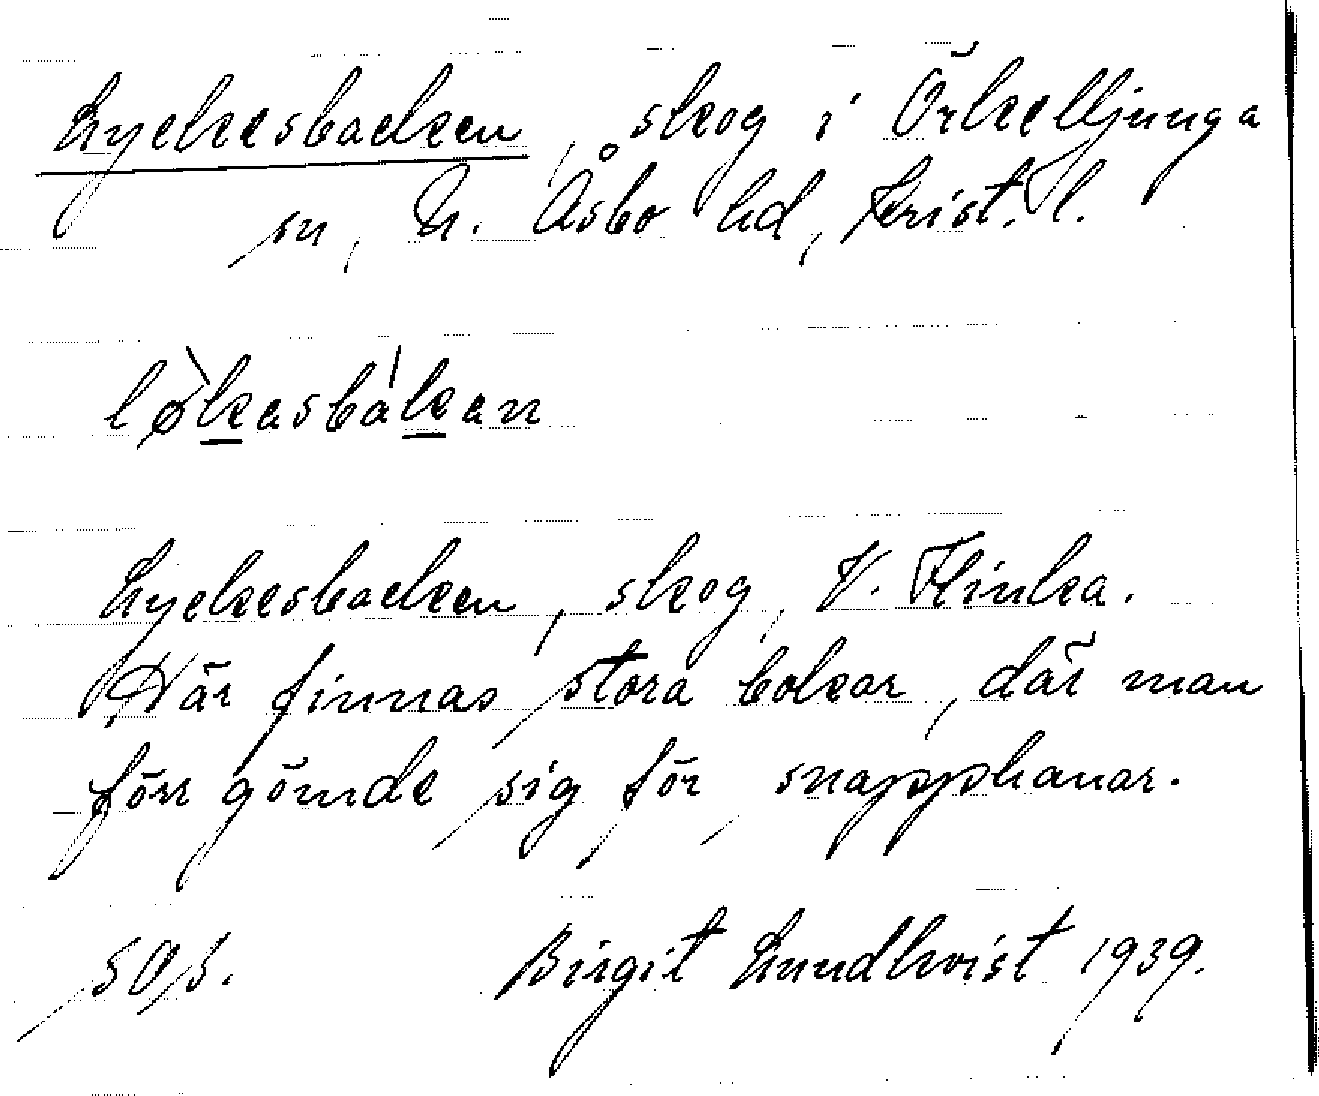 Lyckesbacken, skog i Örkelljunga
sn, N. Åsbo hd, Krist. l.
løkasbakan
Lyckesbacken, skog, V. Flinka.
Här finnas stora bokar, där man
förr gömde sig för snapphanar.
Birgit Lundkvist 1939.